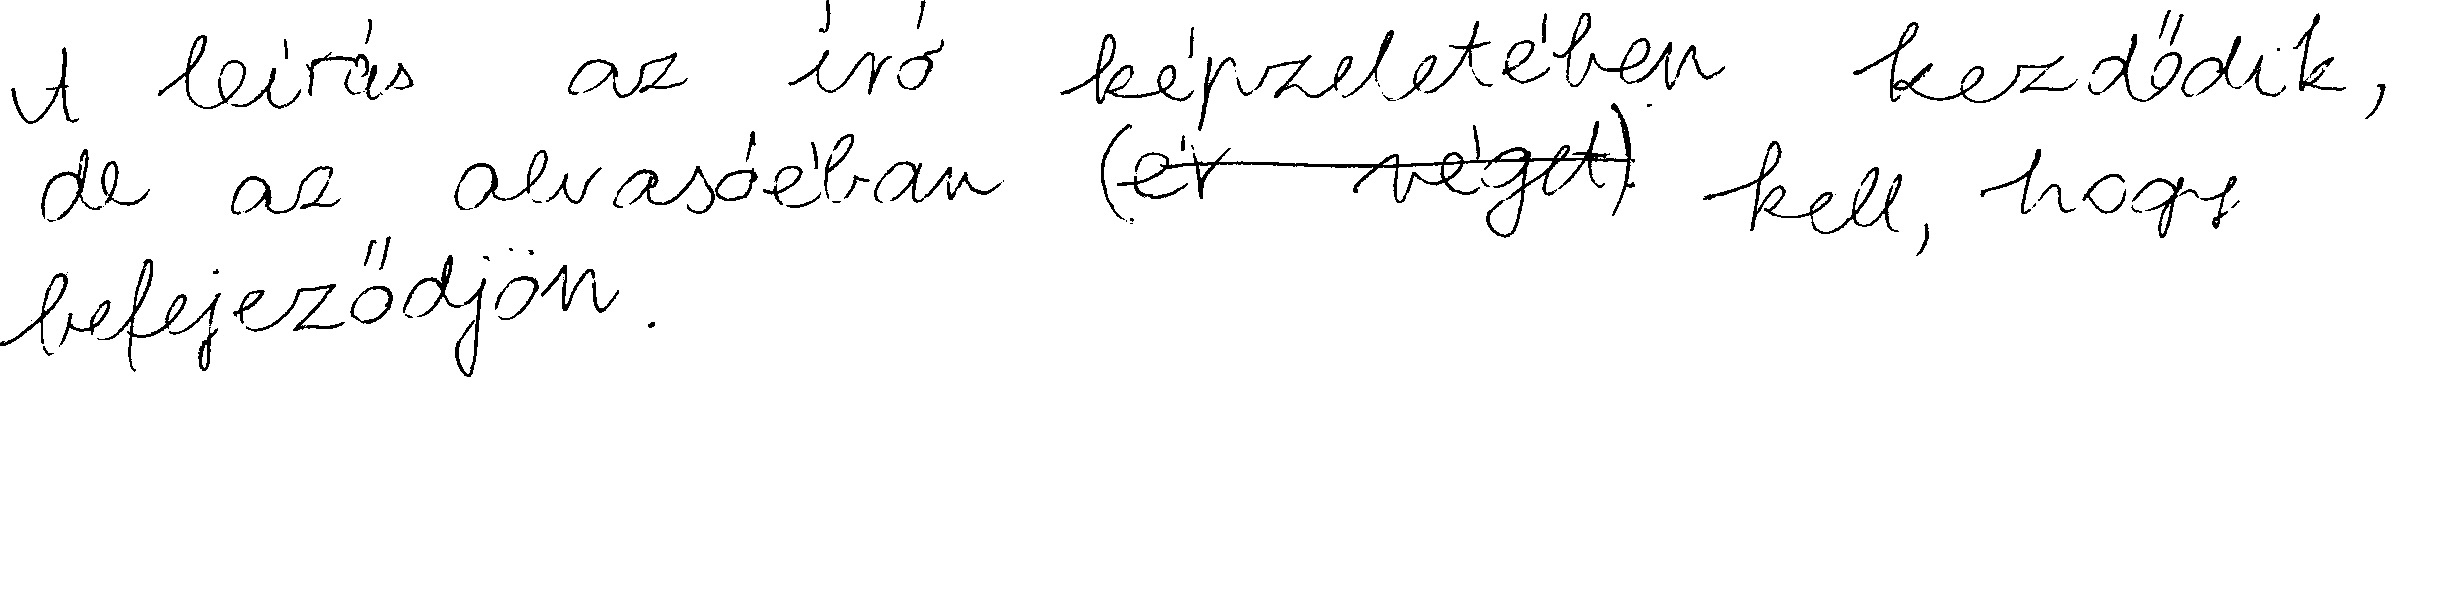 A leírás az író képzeletében kezdődik,
de az olvasóéban (ér véget) kell, hogy
befejeződjön.